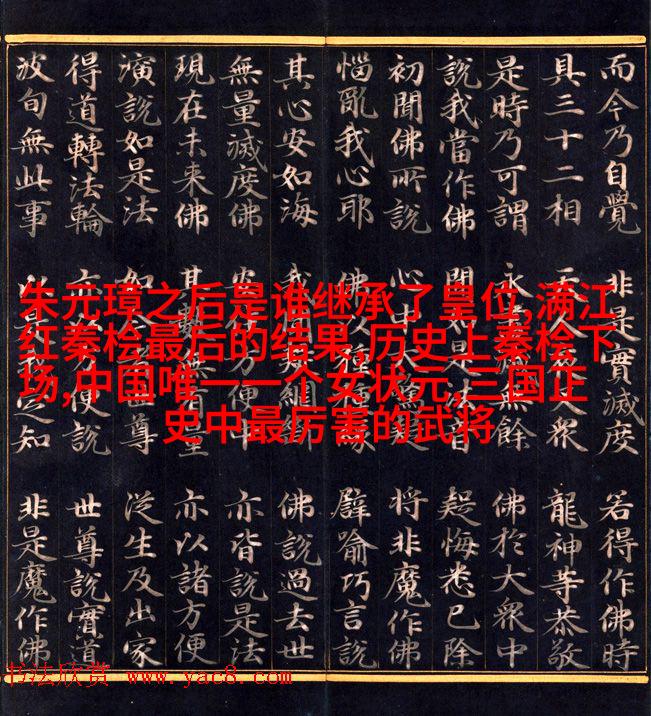 而今乃自覺 非是實滅度 若得作佛時
具三十二相 天人眾 龍神等恭敬
是時乃可謂 永滅無餘 佛於大眾中
說我當作佛 聞是法音 疑悔悉已除
初聞佛所說 心中大疑 將非魔作佛
惱亂我心耶 佛以種 譬喻巧言說
其心安如海 我聞 佛說過去世
無量滅度佛 安方便中 亦皆說是法
現在未來佛 其無有量 亦以諸方便
演說如是法 如尊 從生及出家
得道轉法輪 亦方便說 世尊說實道
波旬無此事 以是知 非是魔作佛
朱元璋之后是谁继承了皇位,满江
红秦桧最后的结果,历史上秦桧下
场,中国唯一一个女状元,三国正
史中最厉害的武将
书法欣赏 www.yac8.com